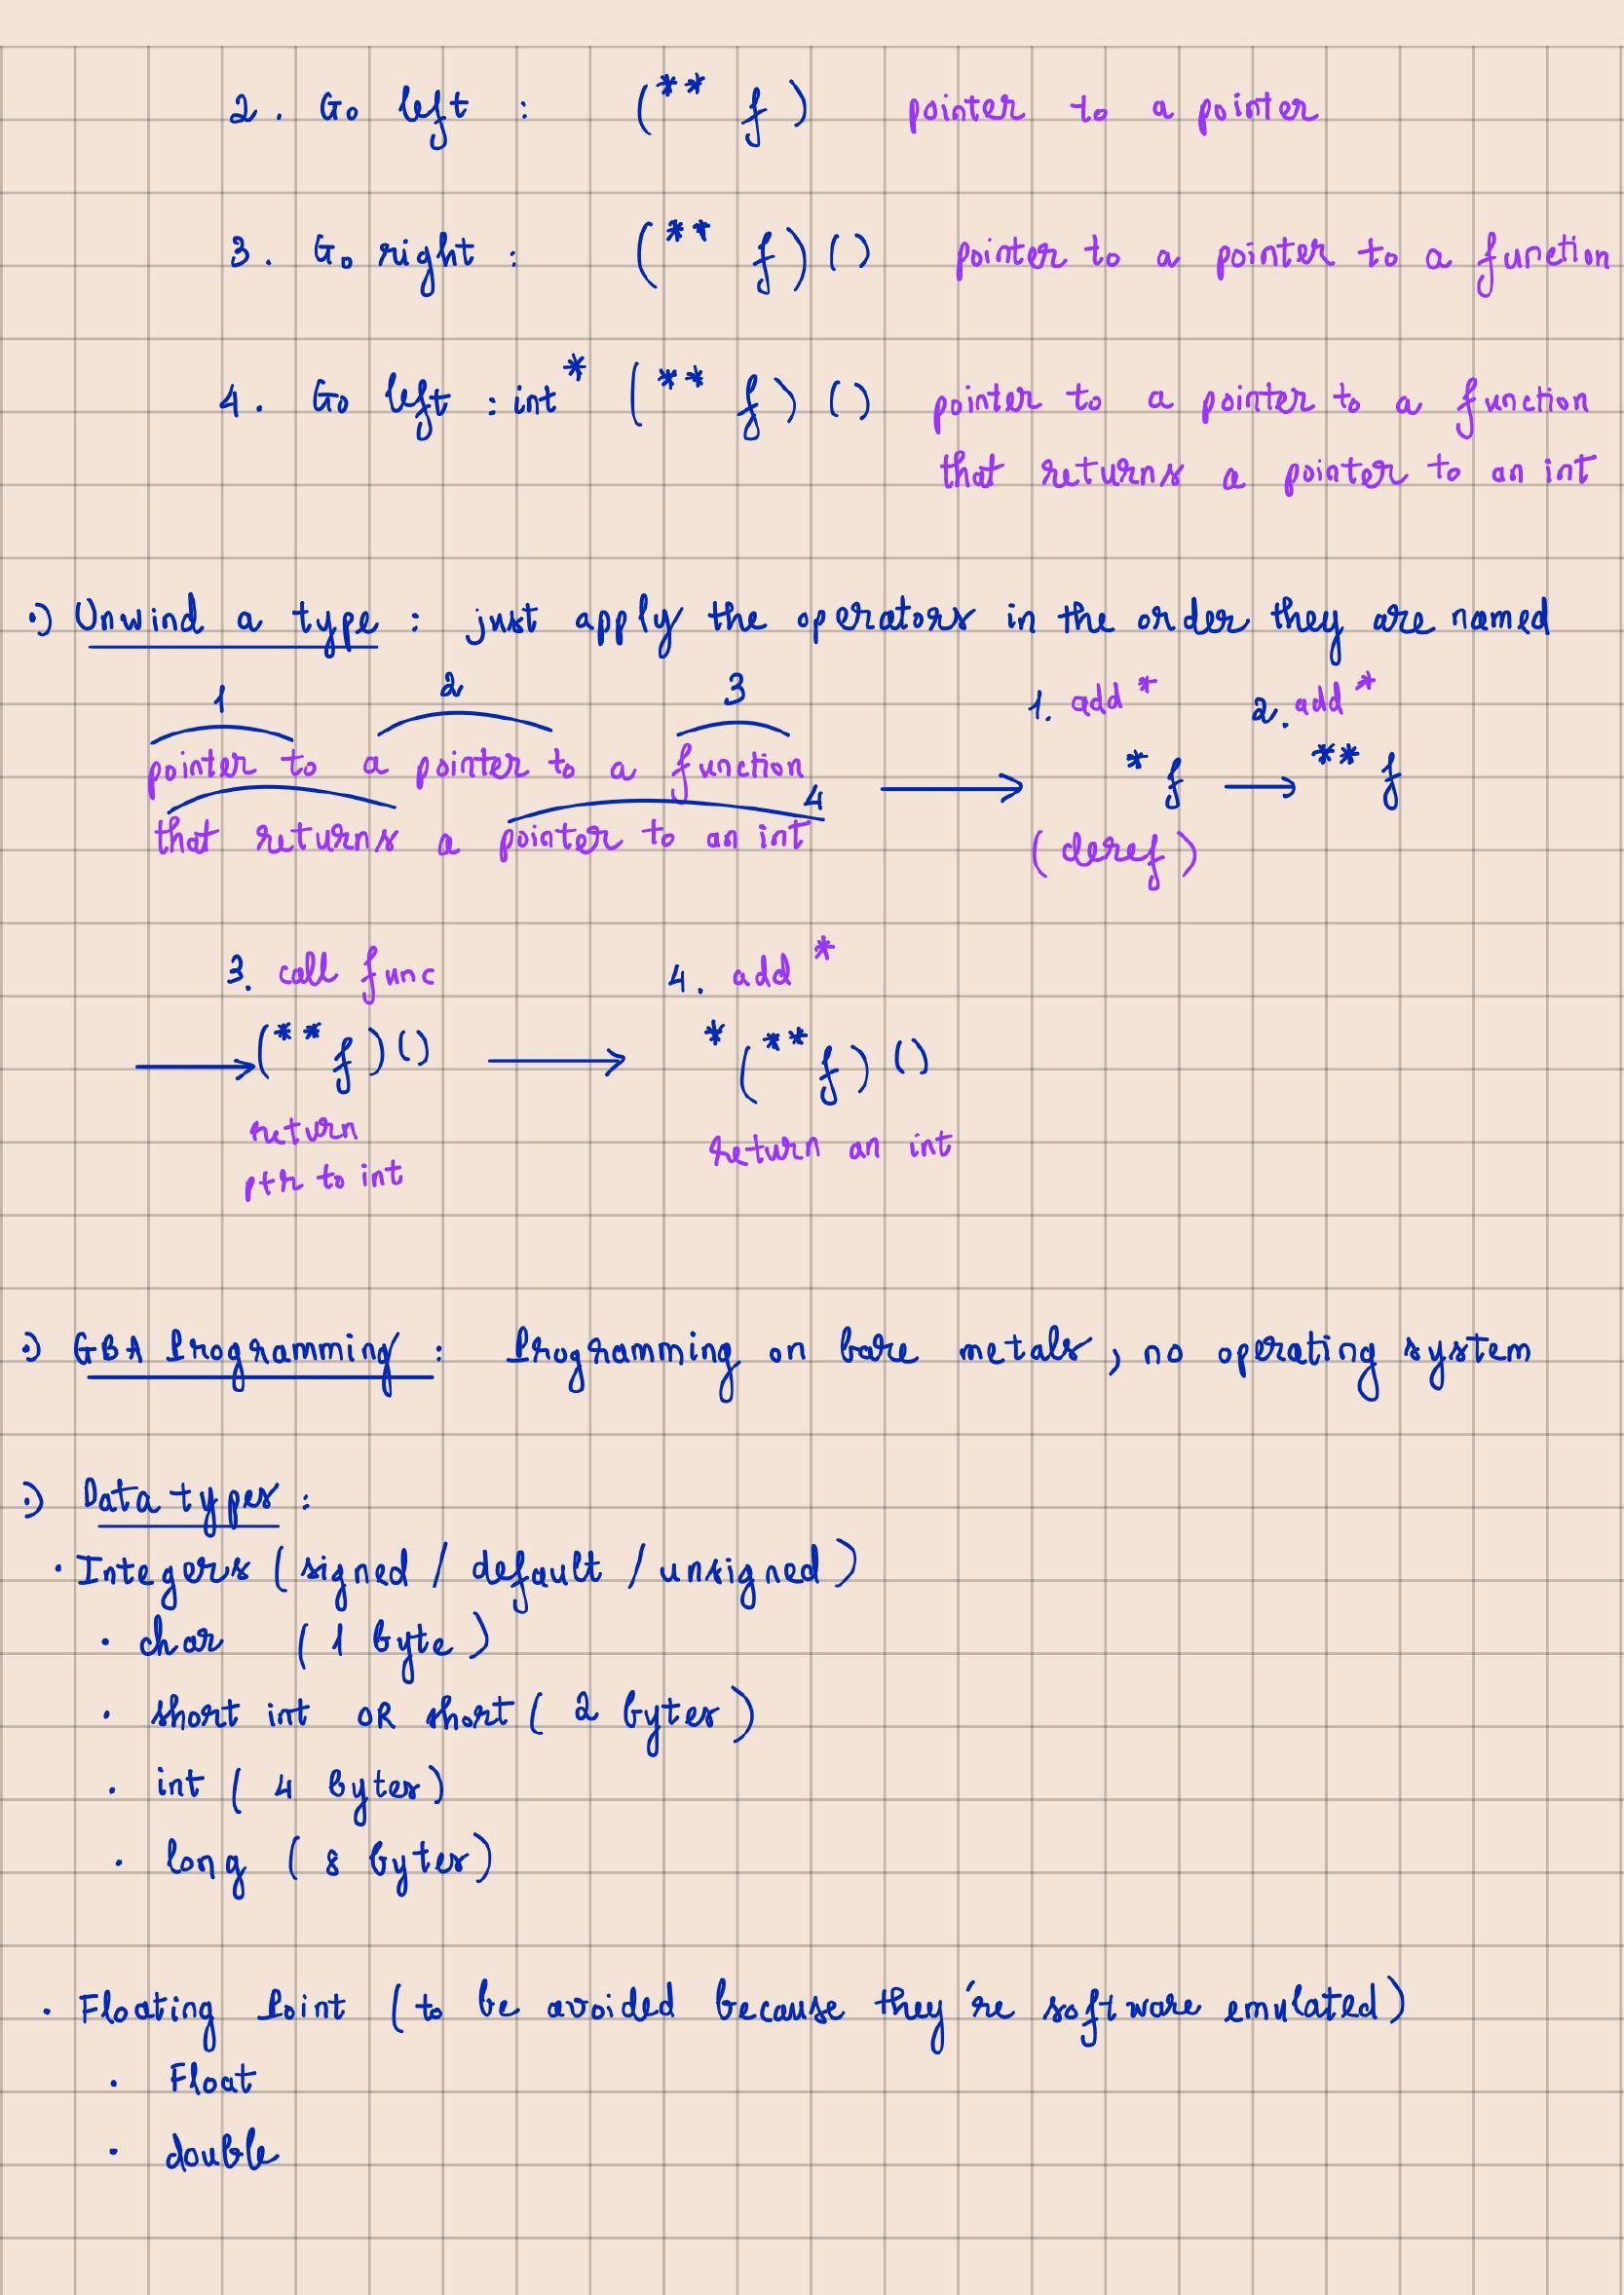 2. Go left : (** f) pointer to a pointer
3. Go right : (** f)() pointer to a pointer to a function
4. Go left : int* (** f)() pointer to a pointer to a function
that returns a pointer to an int
•) Unwind a type : just apply the operators in the order they are named
1 2 3 1. add * 2. add *
pointer to a pointer to a function → * f → ** f
4
that returns a pointer to an int (deref)
3. call func 4. add *
→ (** f)() → * (** f)()
return return an int
ptr to int
•) GBA Programming : Programming on bare metals, no operating system
•) Data types :
• Integers (signed / default / unsigned)
• char (1 byte)
• short int OR short (2 bytes)
• int (4 bytes)
• long (8 bytes)
• Floating Point (to be avoided because they're software emulated)
• Float
• double